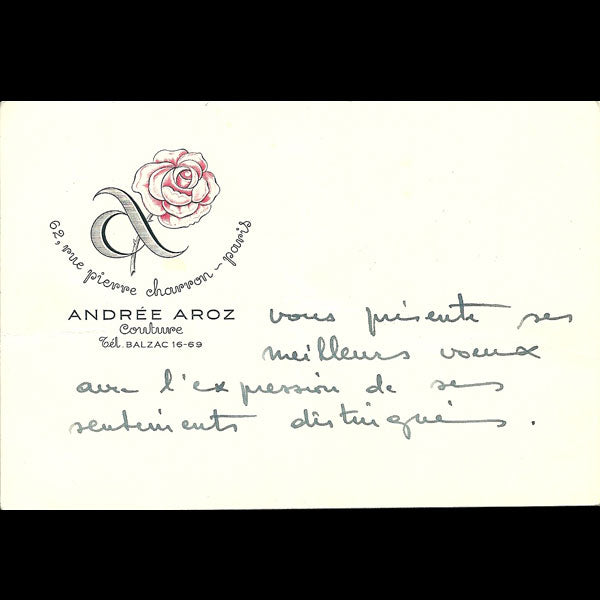 a
62, rue pierre charron - paris
ANDRÉE AROZ
Couture
Tél. BALZAC 16-69
vous présente ses
meilleurs voeux
avec l'expression de ses
sentiments distingués.